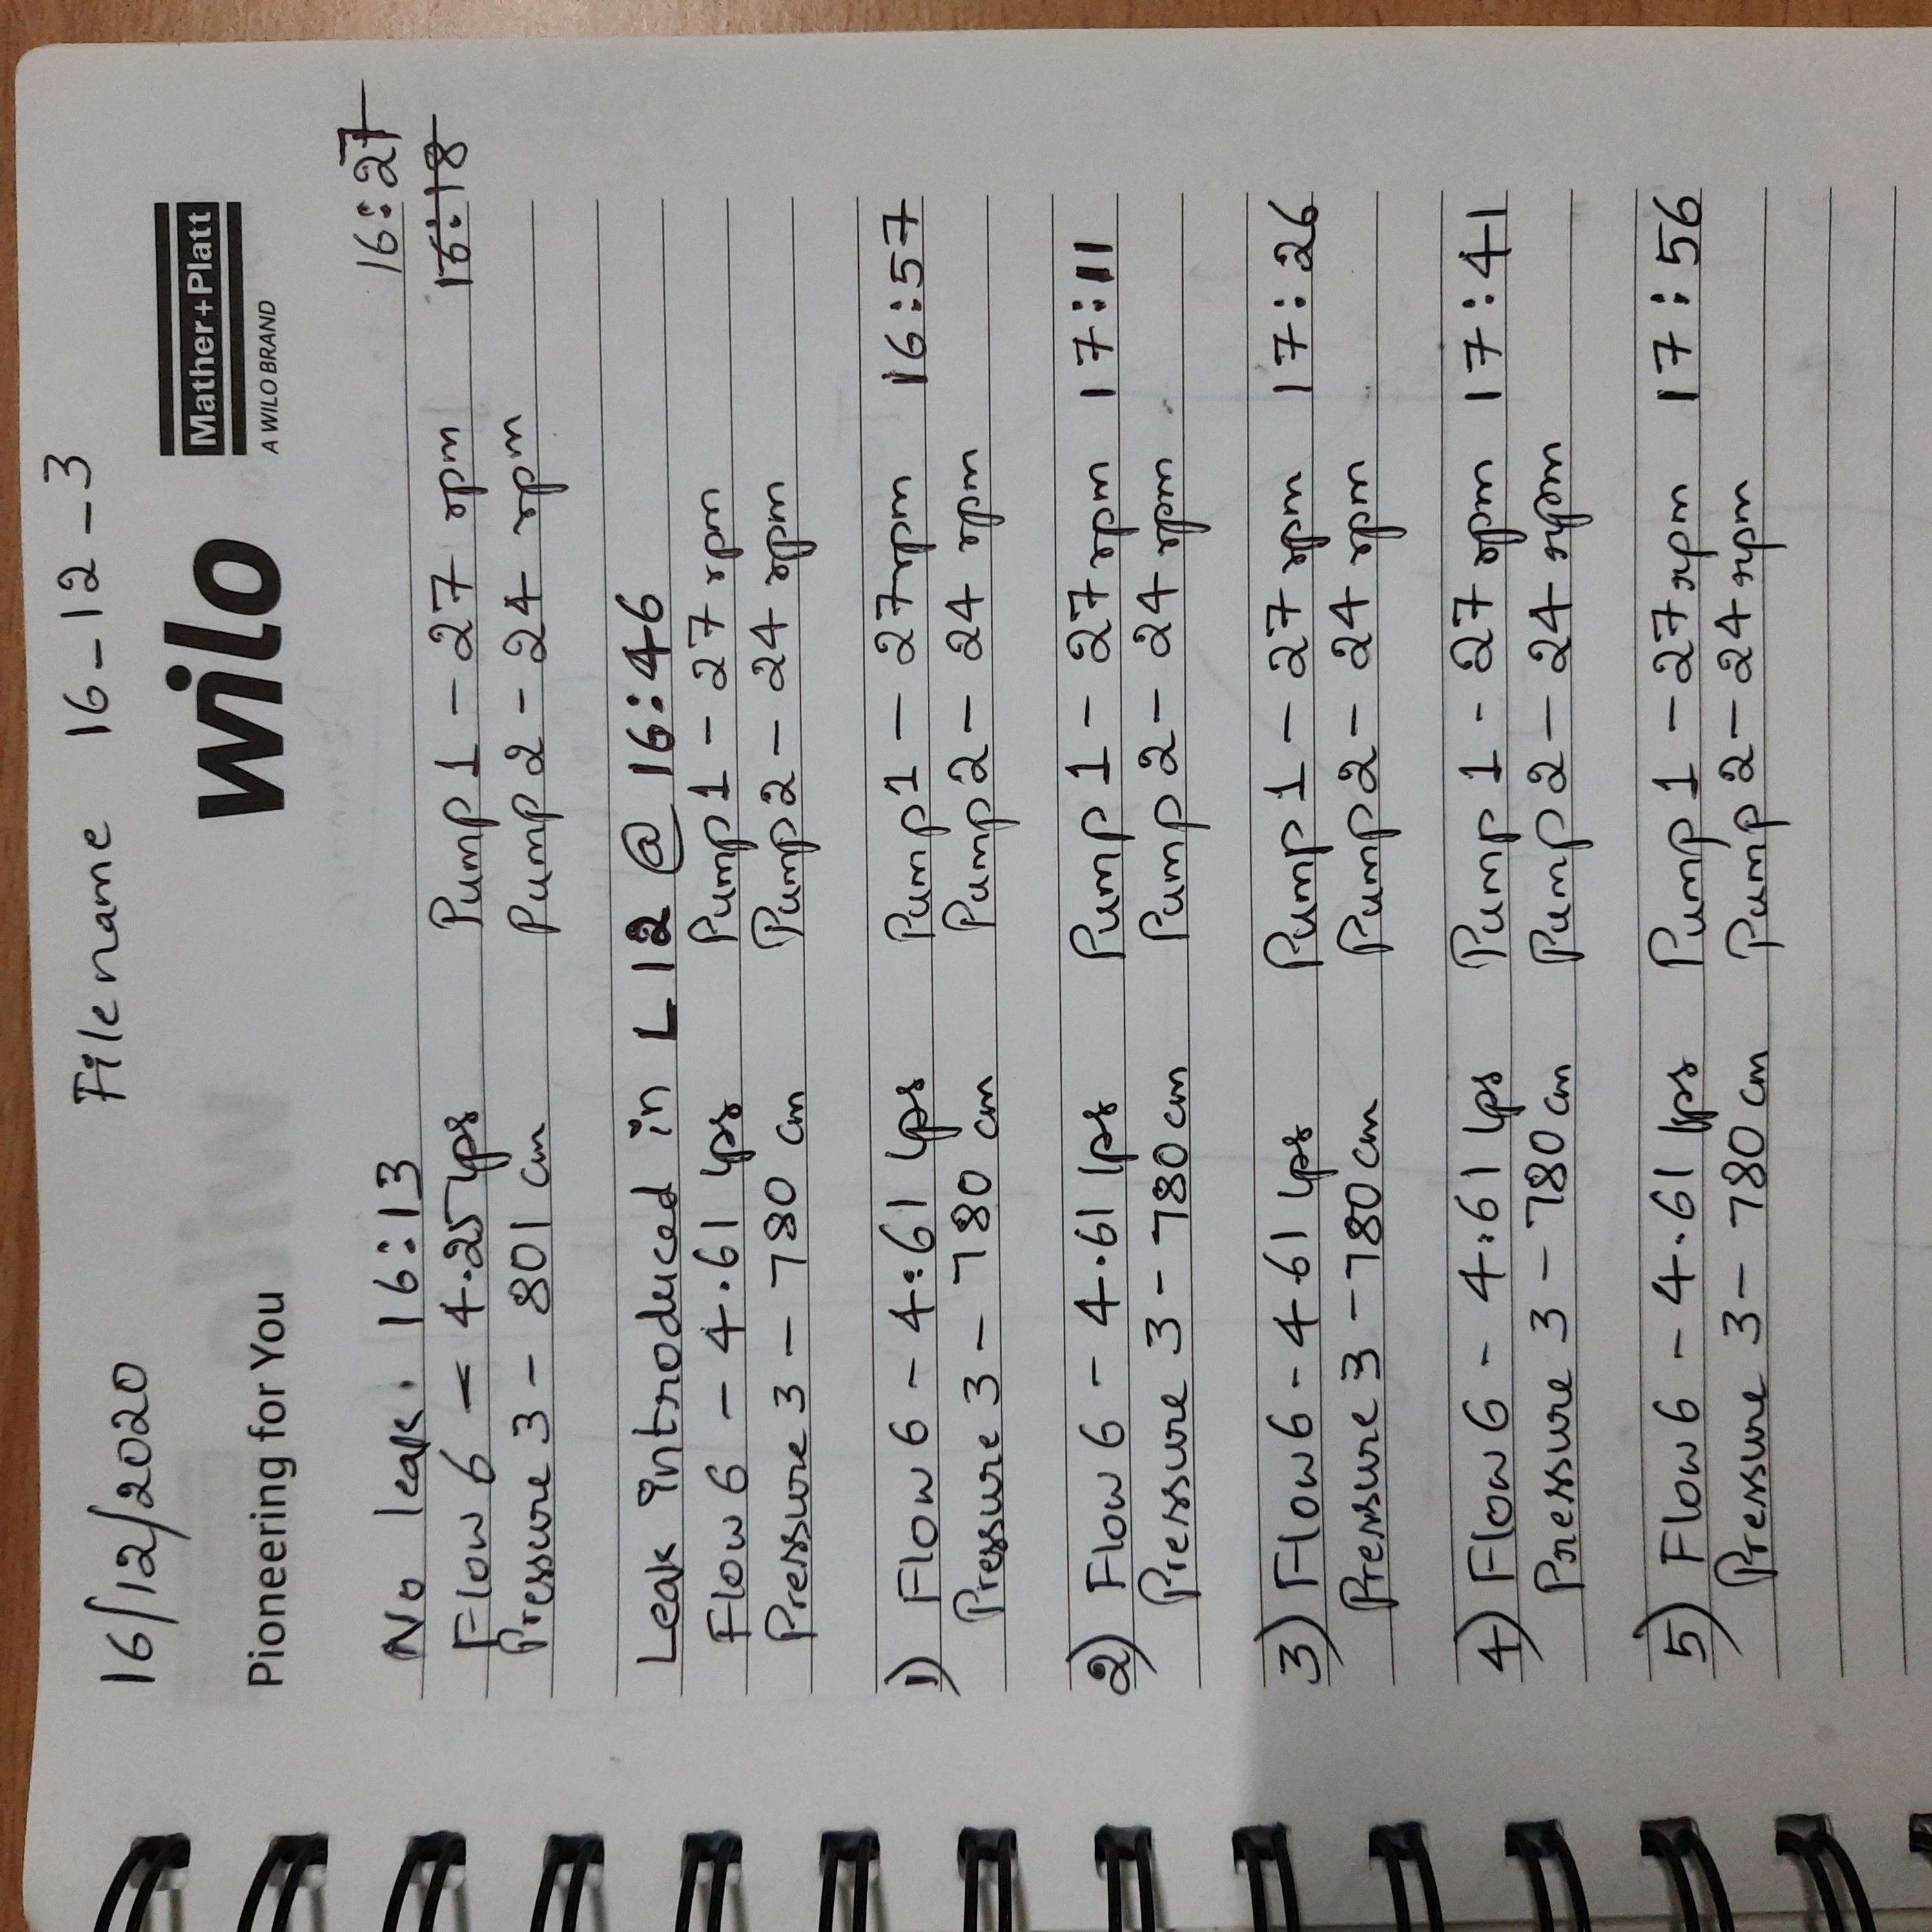 16/12/2020 Filename 16-12-3
Pioneering for You wilo Mather+Platt
A WILO BRAND
No leak. 16:13 16:27
Flow 6 - 4.25 lps Pump 1 - 27 rpm 16:18
Pressure 3 - 801 cm Pump 2 - 24 rpm
Leak introduced in L12 @ 16:46
Flow 6 - 4.61 lps Pump 1 - 27 rpm
Pressure 3 - 780 cm Pump 2 - 24 rpm
1) Flow 6 - 4.61 lps Pump 1 - 27 rpm 16:57
Pressure 3 - 780 cm Pump 2 - 24 rpm
2) Flow 6 - 4.61 lps Pump 1 - 27 rpm 17:11
Pressure 3 - 780 cm Pump 2 - 24 rpm
3) Flow 6 - 4.61 lps Pump 1 - 27 rpm 17:26
Pressure 3 - 780 cm Pump 2 - 24 rpm
4) Flow 6 - 4.61 lps Pump 1 - 27 rpm 17:41
Pressure 3 - 780 cm Pump 2 - 24 rpm
5) Flow 6 - 4.61 lps Pump 1 - 27 rpm 17:56
Pressure 3 - 780 cm Pump 2 - 24 rpm